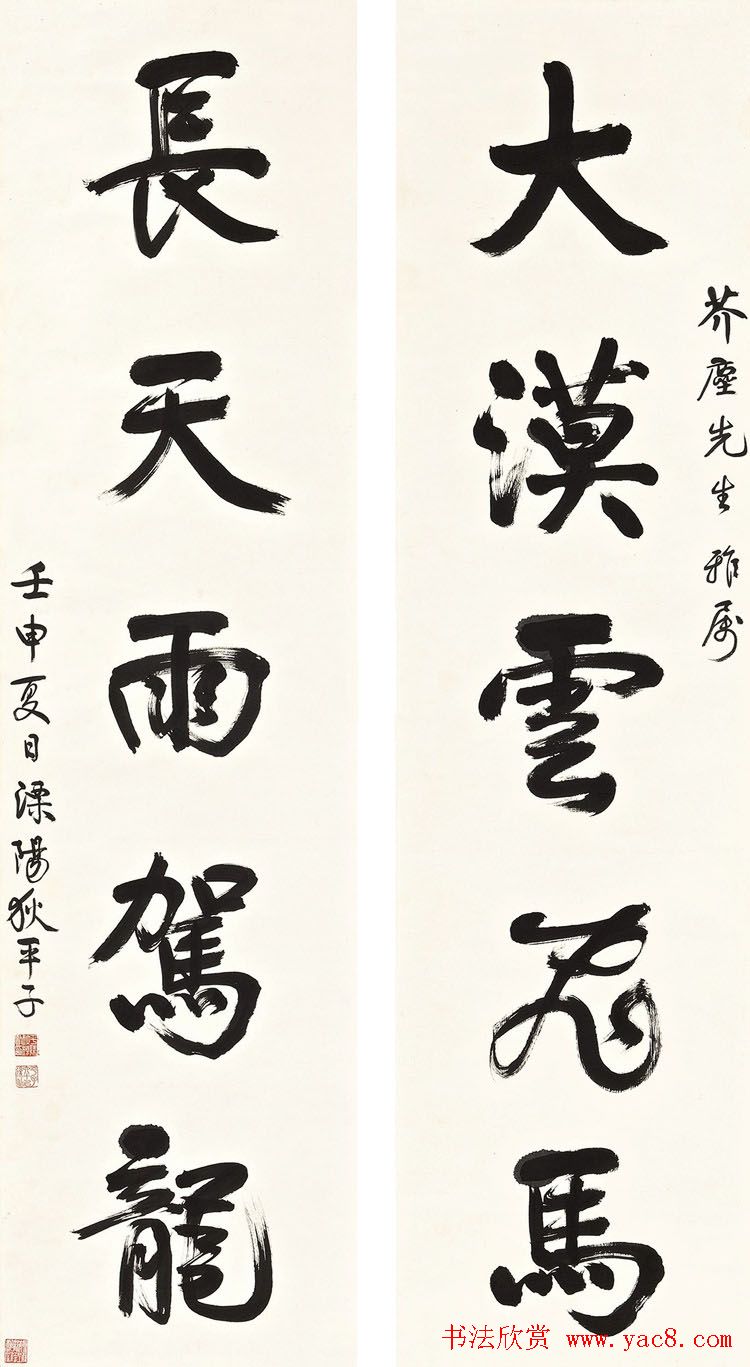 芥塵先生 雅属
大漠雲飛馬
長天雨駕龍
壬申夏日溧陽狄平子
书法欣赏 www.yac8.com